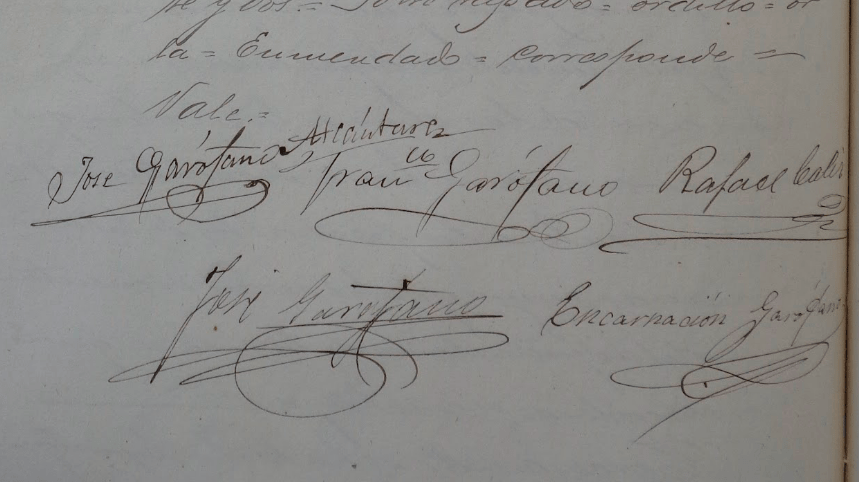 se y dos = Tomo = ordillo = or
la = Enmendado = corresponde =
Vale. =
Jose Garófano Alcántara
Fran.co Garófano Rafael
José Garófano Encarnación Garófano